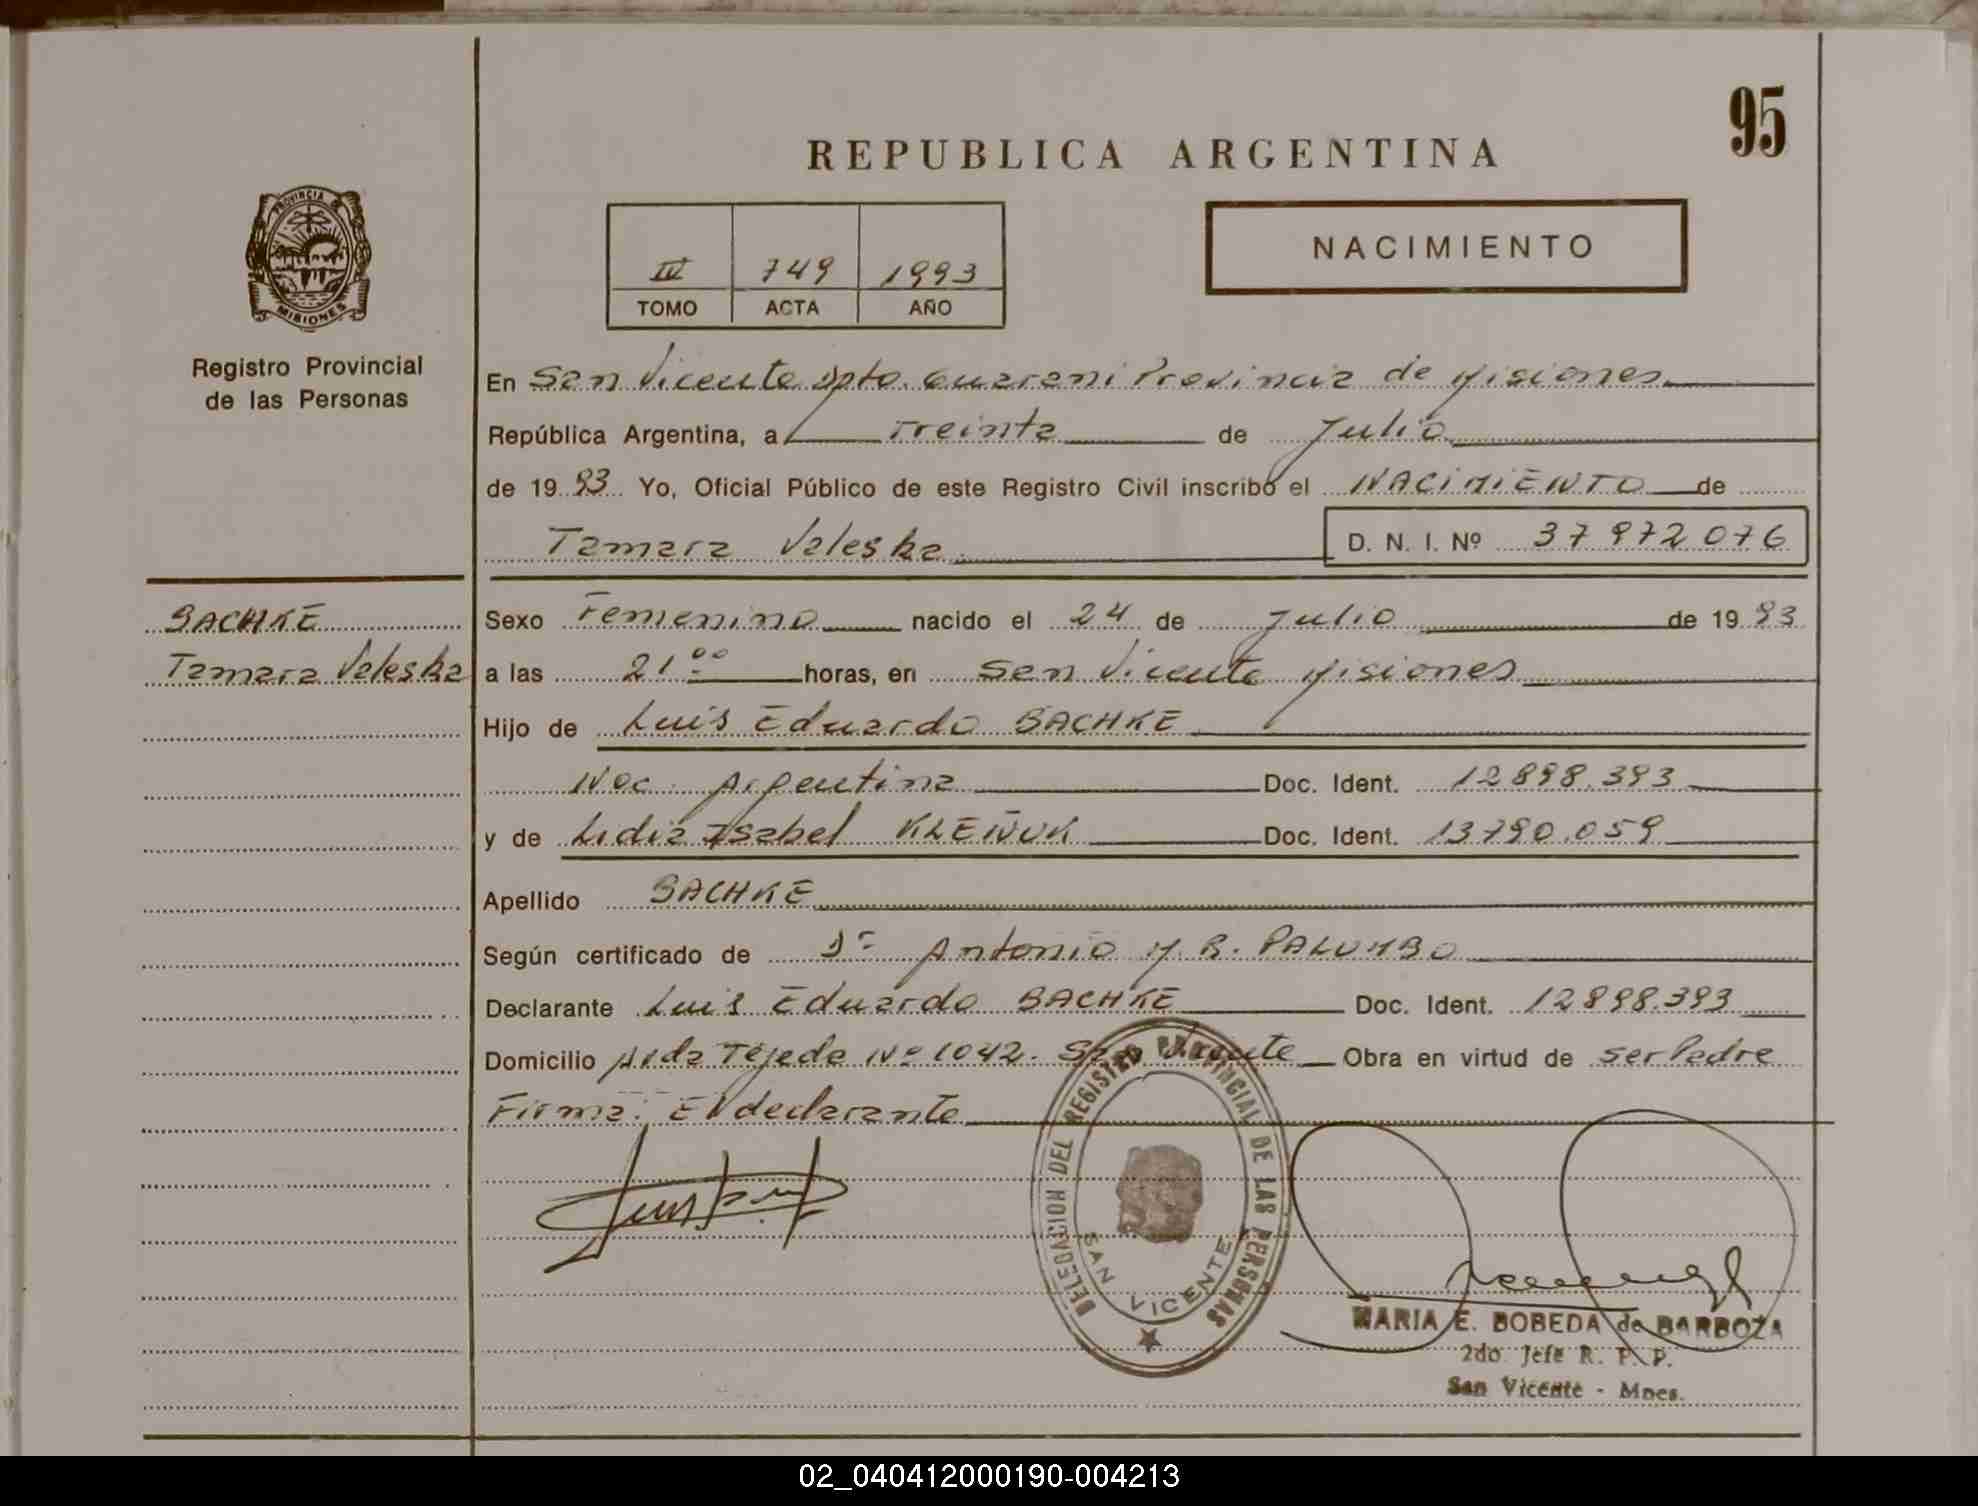 95
REPUBLICA ARGENTINA
PROVINCIA DE
MISIONES
Registro Provincial
de las Personas
IV 749 1993
TOMO ACTA AÑO
NACIMIENTO
En San Vicente Dpto. Guarani Provincia de Misiones
República Argentina, a Treinta de Julio
de 1993 Yo, Oficial Público de este Registro Civil inscribo el NACIMIENTO de
Tamara Valeska D. N. I. Nº 37972076
BACHKE
Tamara Valeska
Sexo Femenino nacido el 24 de Julio de 1993
a las 21 00 horas, en San Vicente Misiones
Hijo de Luis Eduardo BACHKE
Nac. Argentina Doc. Ident. 12898.393
y de Lidia Isabel KLEÑUK Doc. Ident. 13790.059
Apellido BACHKE
Según certificado de Dr Antonio M. R. PALUMBO
Declarante Luis Eduardo BACHKE Doc. Ident. 12898.393
Domicilio Avda Tejeda Nº 1042. San Vicente Obra en virtud de ser Padre
Firma: El declarante
DELEGACION DEL REGISTRO PROVINCIAL DE LAS PERSONAS
SAN VICENTE
MARIA E. BOBEDA de BARBOZA
2do Jefe R. P. P.
San Vicente - Mnes.
02_040412000190-004213